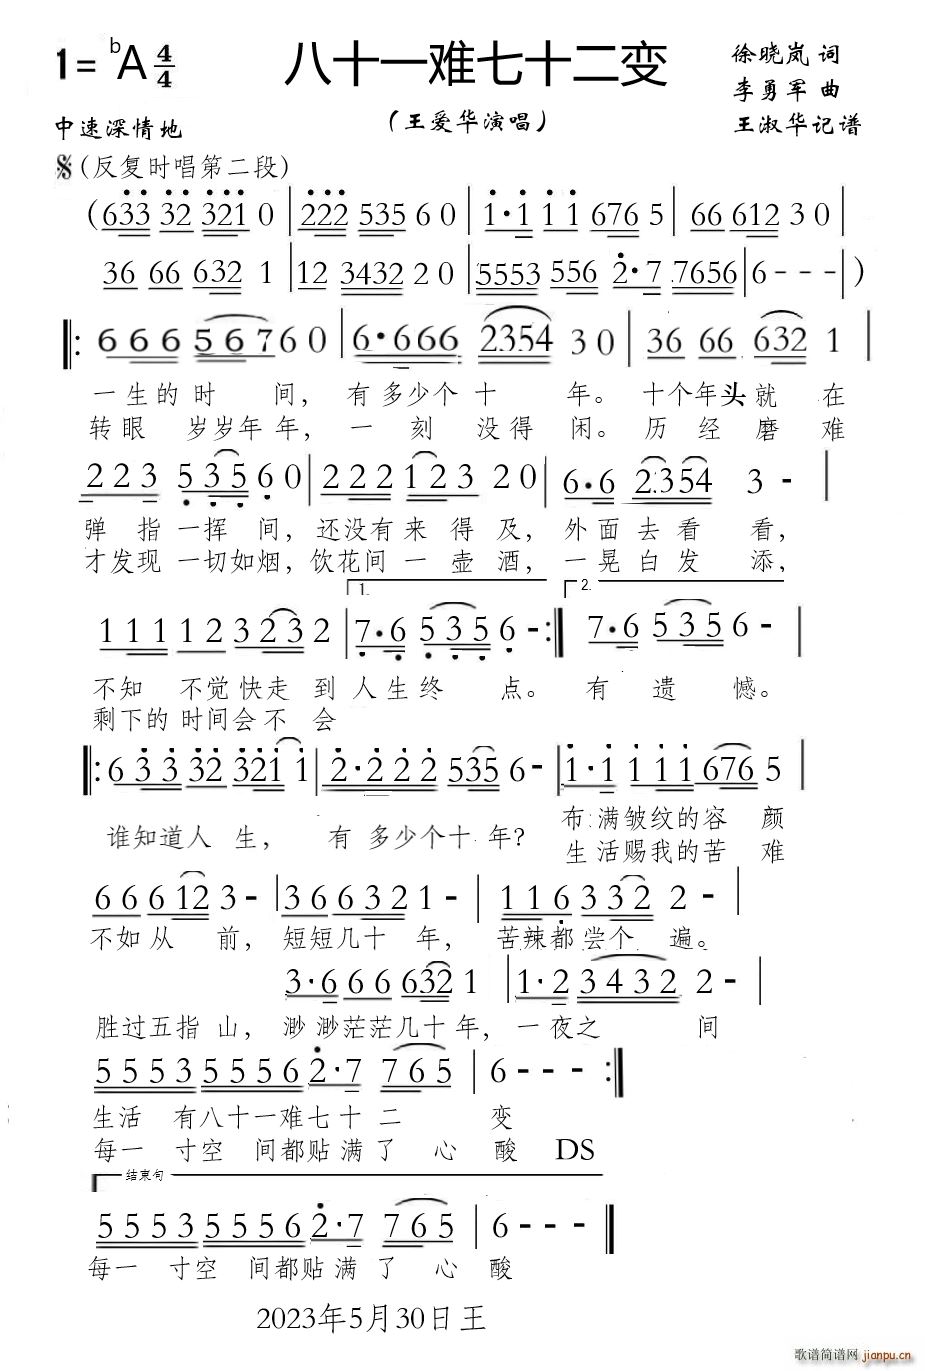 1= ♭A 4/4 八十一难七十二变 徐晓岚 词
李勇军 曲
中速深情地 （王爱华演唱） 王淑华记谱
𝄋(反复时唱第二段)
(633 32 321 0 | 222 535 6 0 | 1·1 1 1 676 5 | 66 612 3 0 |
36 66 632 1 | 12 3432 2 0 | 5553 556 2·7 .7656 | 6 - - - | )
‖: 6 6 6 5 6 7 6 0 | 6·666 2354 3 0 | 36 66 632 1 |
一生的时 间， 有多少个 十 年。 十个年头就 在
转眼 岁岁年 年， 一 刻 没得 闲。 历 经 磨 难
2 2 3 5 3 5 6 0 | 2 2 2 1 2 3 2 0 | 6·6 2.354 3 - |
弹 指 一挥 间，还没有来 得 及， 外 面 去 看 看，
才发现 一切如烟，饮花间 一 壶 酒， 一 晃 白 发 添，
1. 2.
1 1 1 1 2 3 2 3 2 | 7·6 5 3 5 6 -:‖ 7·6 5 3 5 6 - |
不知 不觉快走 到 人生终 点。 有 遗 憾。
剩下的 时间会不 会
‖: 6 3 3 32 321 1 | 2·2 2 2 535 6 - | 1·1 1 1 1 676 5 |
布 满皱纹的容 颜
谁知道人 生， 有 多少个十 年?
生 活赐我的苦 难
6 6 6 12 3 - | 3 6 6 3 2 1 - | 1 1 6 3 3 2 2 - |
不如从 前， 短短几十 年， 苦辣都 尝个 遍。
3·6 6 6 632 1 | 1·2 3 4 3 2 2 - |
胜过五指 山， 渺 渺茫茫几十年，一 夜之 间
5 5 5 3 5 5 5 6 2·7 7 6 5 | 6 - - - :‖
生活 有八十一难七 十 二 变
每一 寸空 间都贴 满 了 心 酸 DS
结束句
5 5 5 3 5 5 5 6 2·7 7 6 5 | 6 - - - ‖
每一 寸空 间都贴 满 了 心 酸
2023年5月30日王
歌谱简谱网
jianpu.cn